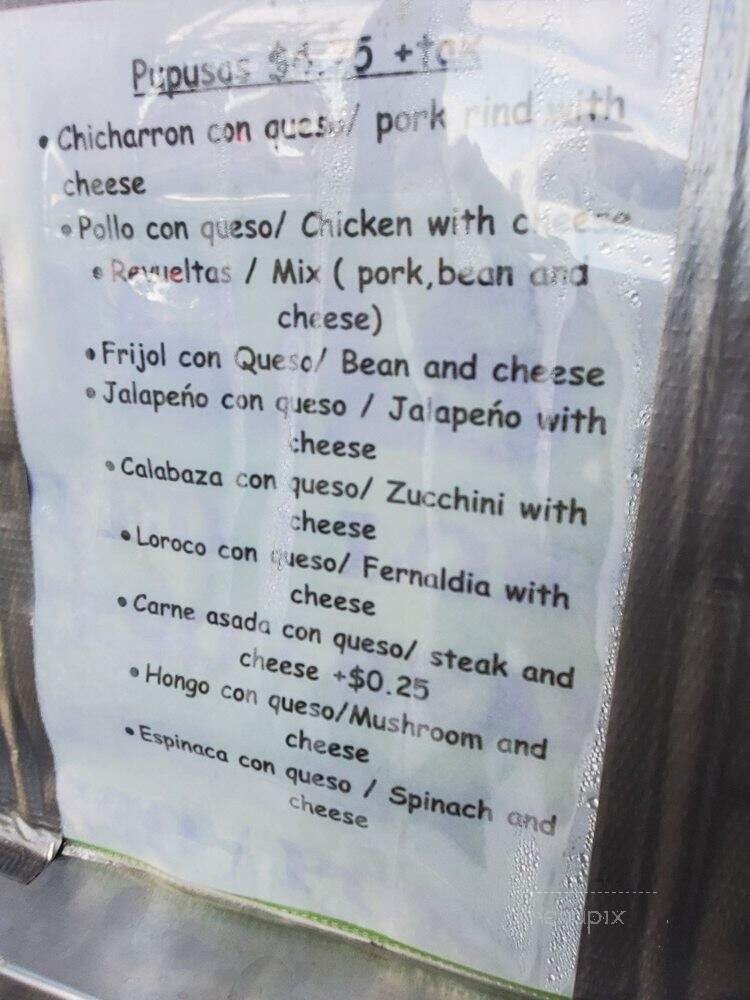 Pupusas +tax
• Chicharron con queso/ pork rind with
cheese
• Pollo con queso/ Chicken with cheese
• Revueltas / Mix ( pork,bean and
cheese)
• Frijol con Queso/ Bean and cheese
• Jalapeńo con queso / Jalapeńo with
cheese
• Calabaza con queso/ Zucchini with
cheese
• Loroco con queso/ Fernaldia with
cheese
• Carne asada con queso/ steak and
cheese +$0.25
• Hongo con queso/Mushroom and
cheese
• Espinaca con queso / Spinach and
cheese